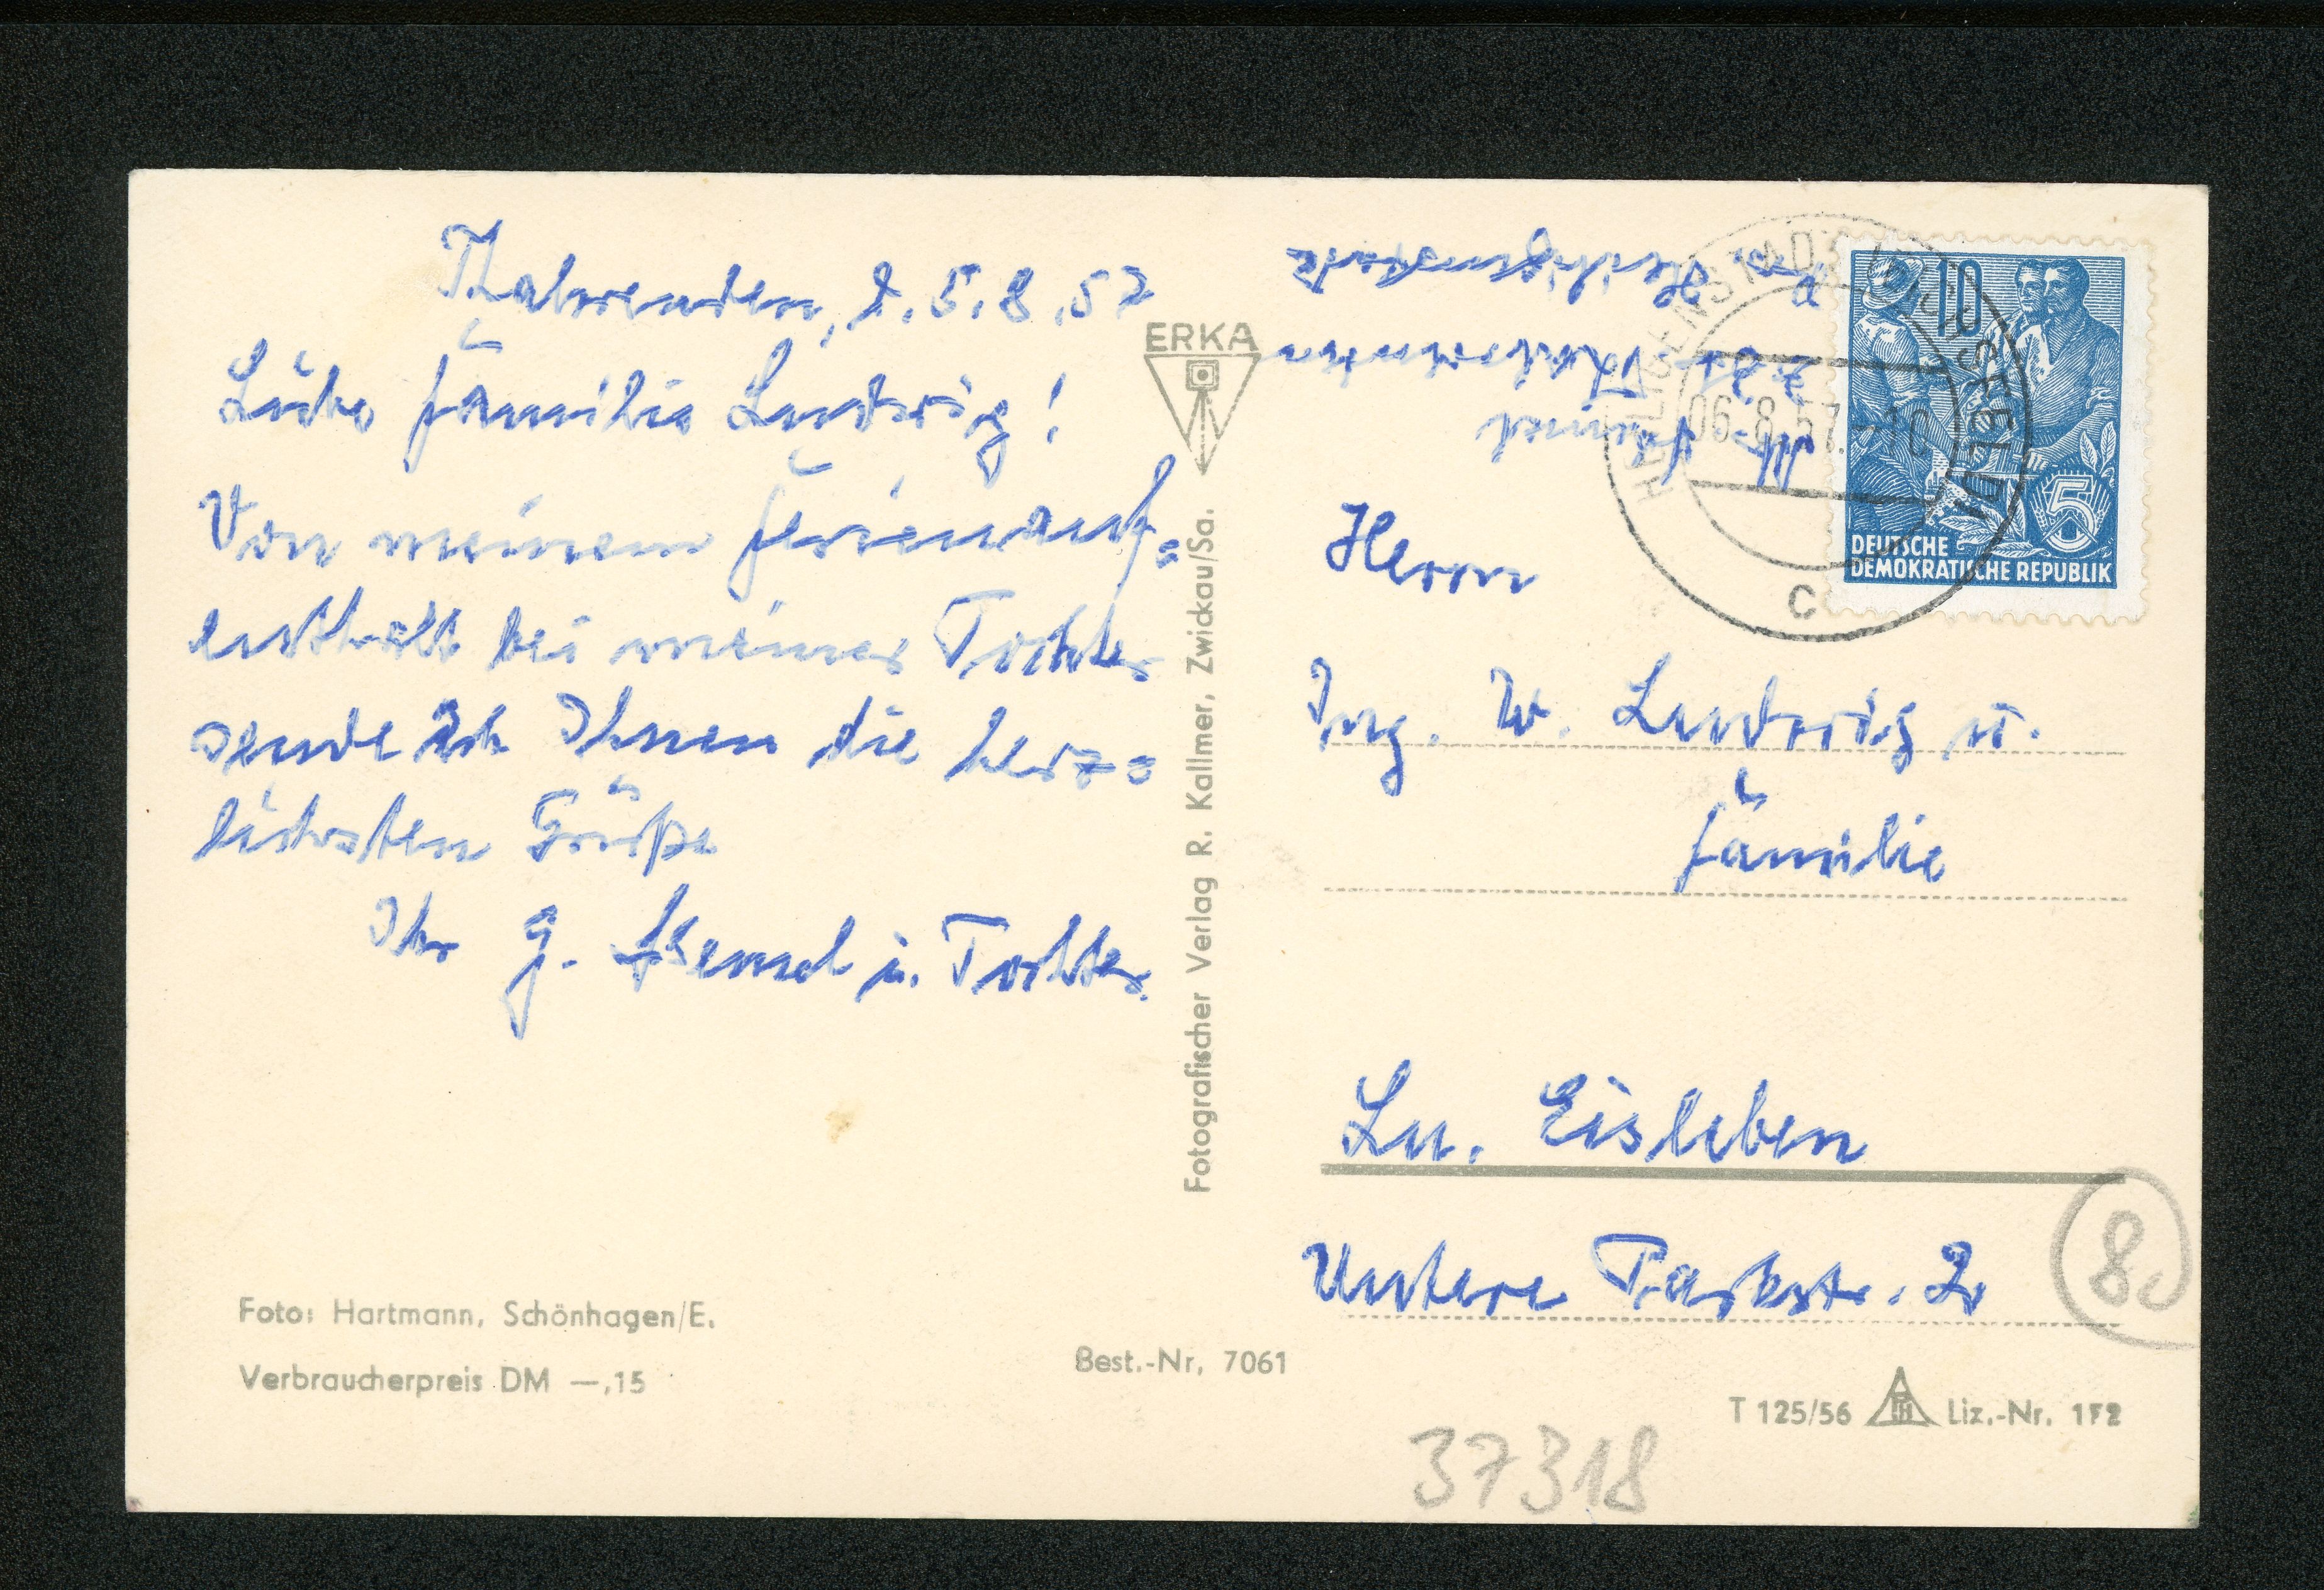 Thalwenden, d. 5.8.57
Liebe Familie Ludwig!
Von meinem Ferienauf=
enthalt bei meiner Tochter
sende ich Ihnen die herz=
lichsten Grüße
Ihr G. Hensel u. Tochter.
Foto: Hartmann, Schönhagen/E.
Verbraucherpreis DM —,15
ERKA
Fotografischer Verlag R. Kallmer, Zwickau/Sa.
Best.-Nr. 7061
Hensel
z. Zt. Thalwenden
Heiligenstadt
HEILIGENSTADT (EICHSFELD)
06.8.57.-10
C
10
5
DEUTSCHE
DEMOKRATISCHE REPUBLIK
Herrn
Ing. W. Ludwig u.
Familie
Lu. Eisleben
Untere Parkstr. 2
8
T 125/56 Liz.-Nr. 172
37318